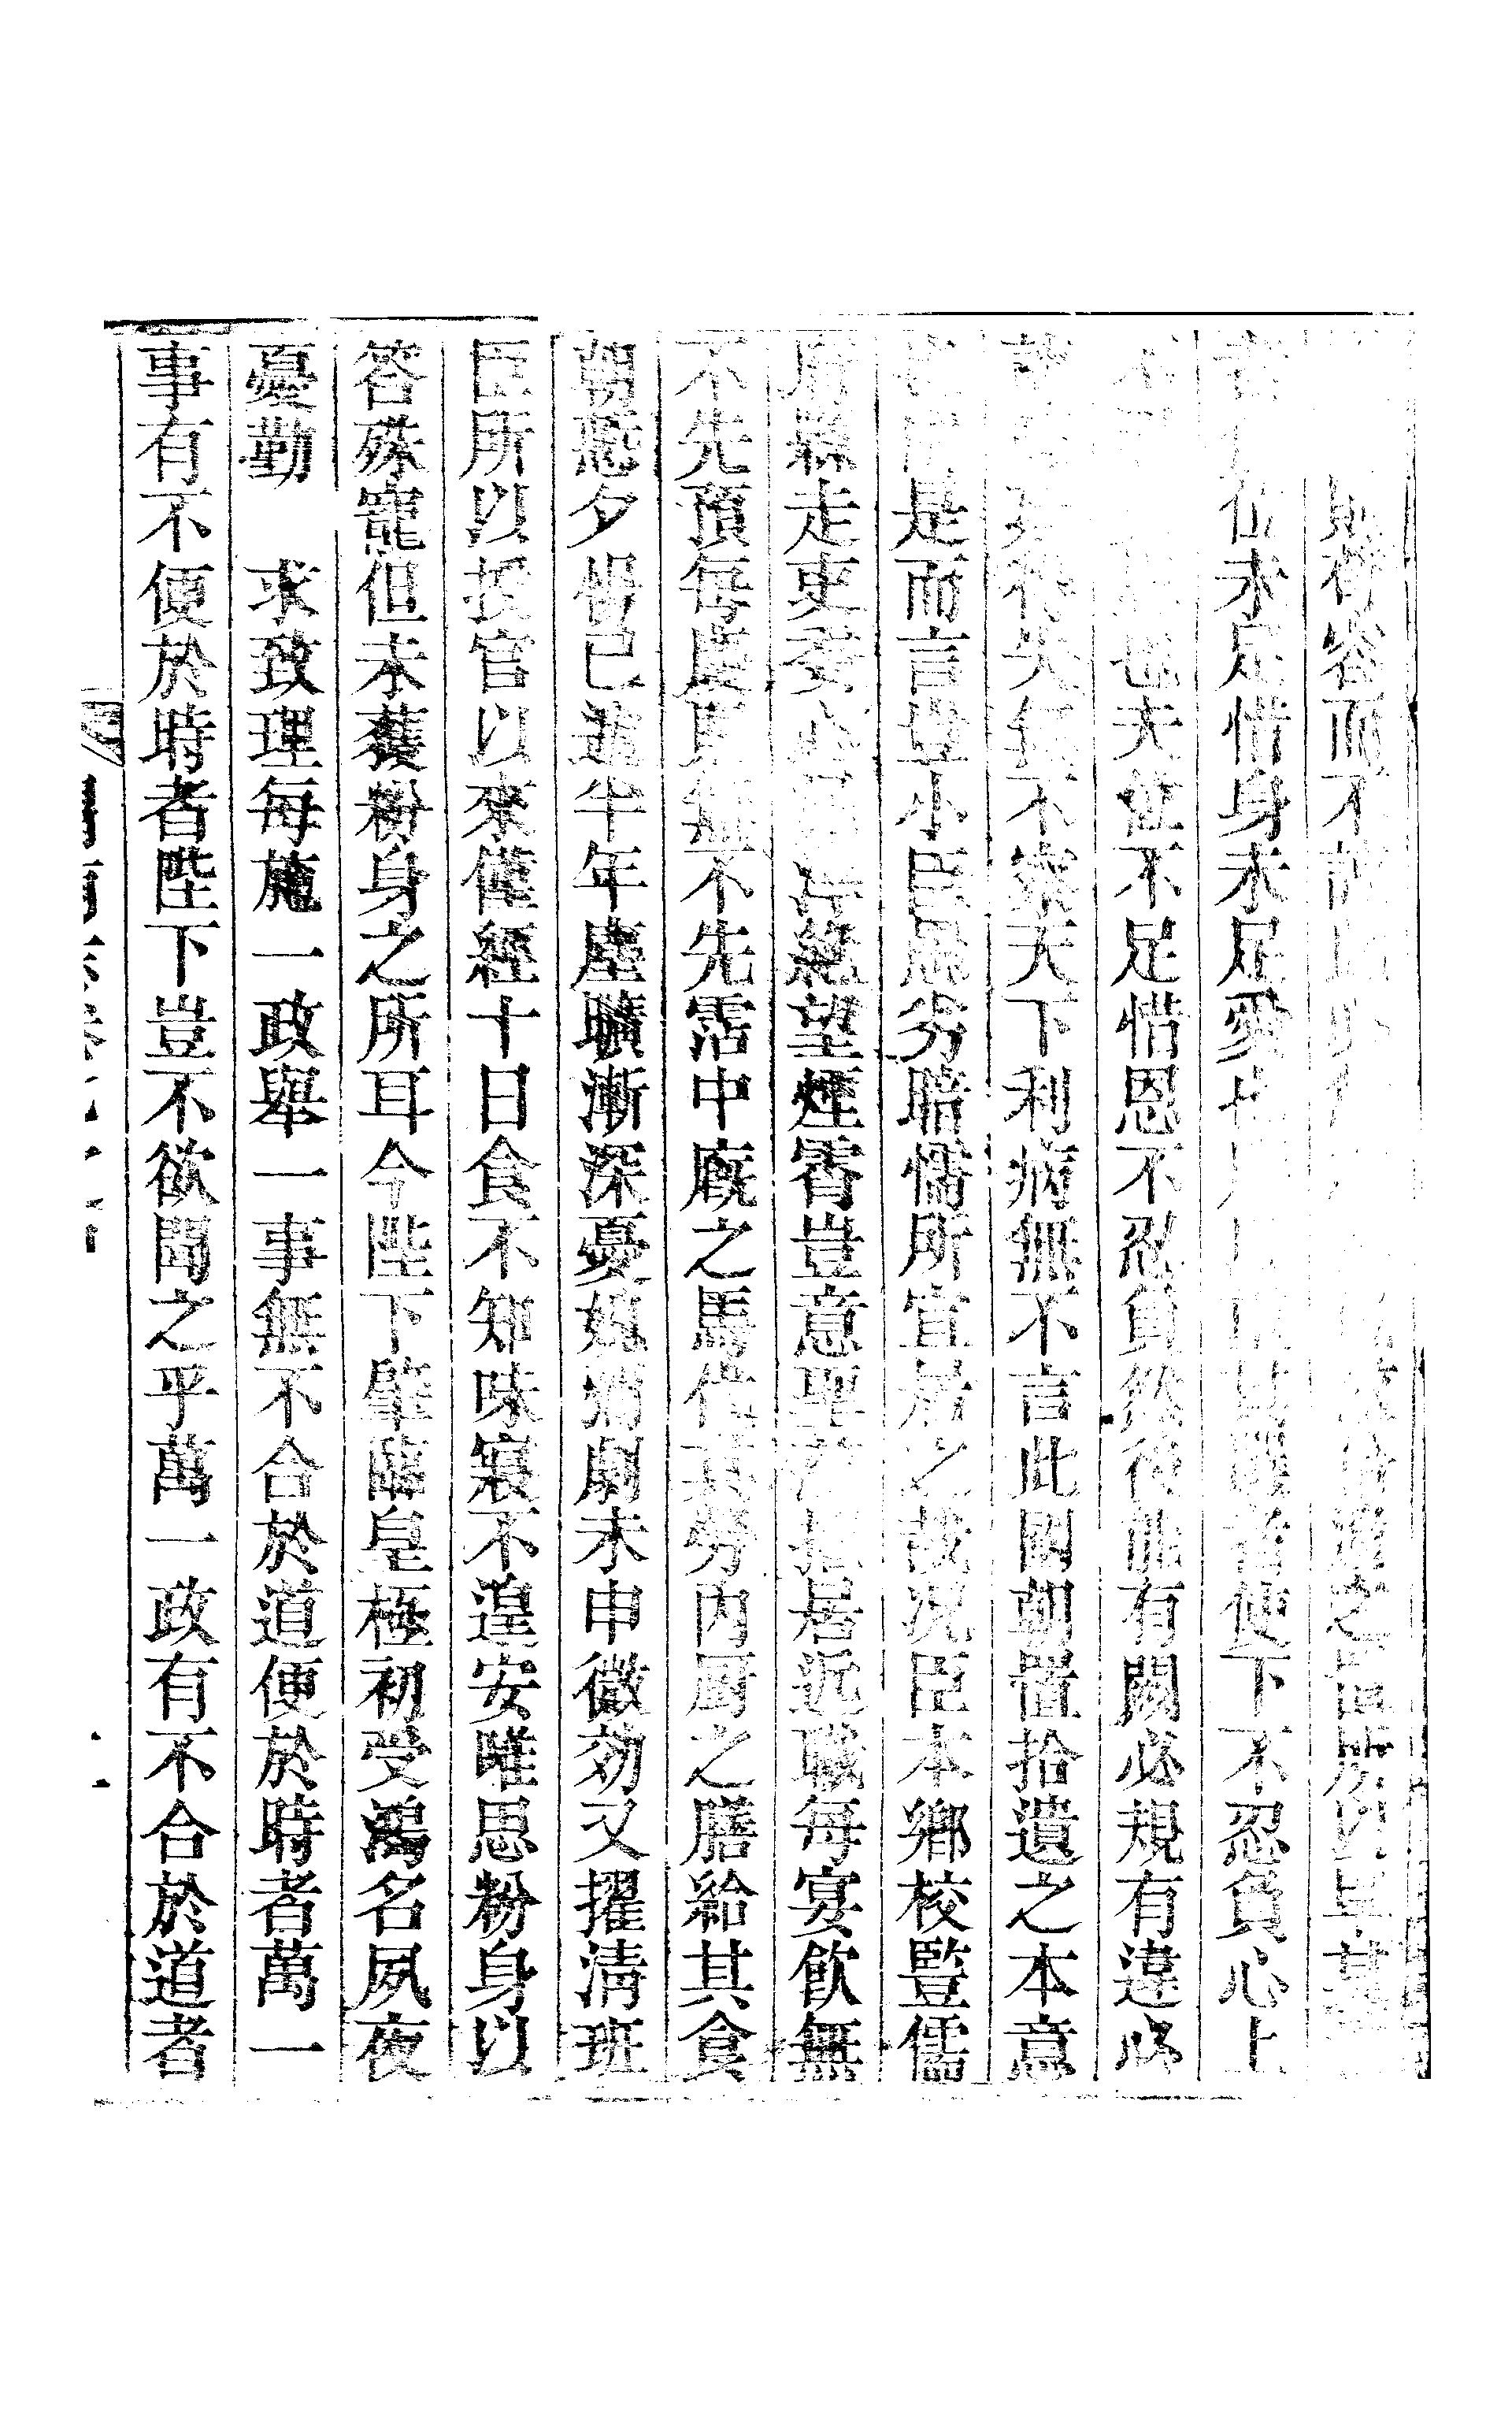 則苟容而不諫此必 拾遺之置所以卑其
者 位未足惜身未足愛也 以重其選者使下不忍負心上
不 也夫位不足惜恩不忍負然後能有闕必規有違必
諫 得失無不察天下利病無不言此國朝置拾遺之本意
是而言豈小臣愚劣暗懦所宜居之哉況臣本鄉校豎儒
府縣走吏委心 絶望煙霄豈意聖 居近職每宴飫無
不先預每慶賜無不先霑中廐之馬代其勞內厨之膳給其食
朝慙夕惕已逾半年塵曠漸深憂媿彌劇未申微効又擢清班
臣所以授官以來僅經十日食不知味寢不遑安唯思粉身以
答殊寵但未獲粉身之所耳今陛下肇臨皇極初受鴻名夙夜
憂勤 求致理每施一政舉一事無不合於道便於時者萬一
事有不便於時者陛下豈不欲聞之乎萬一政有不合於道者